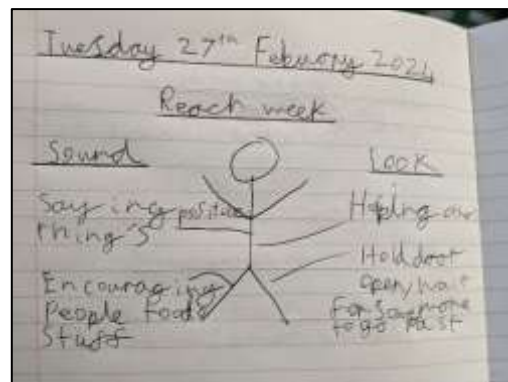 Tuesday 27th Febuary 2024
Reach week
Sound
Saying positive
thing's
Encouraging
People to do
Stuff
Look
Helping
Hold door
open, wait
for someone
to go past